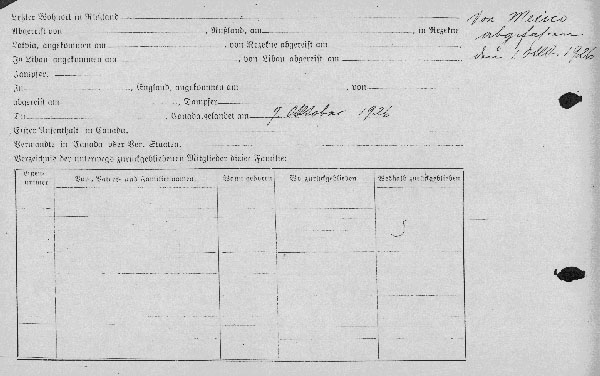 Letzter Wohnort in Rußland
Abgereist von , Rußland, am , in Rezekne
Latvia, angekommen am , von Rezekne abgereist am
In Libau angekommen am , von Libau abgereist am
Dampfer
In , England, angekommen am , von
abgereist am , Dampfer
In , Canada gelandet am 9. Oktober 1926
Erster Aufenthalt in Canada
Verwandte in Canada oder Ver. Staaten
Verzeichnis der unterwegs zurückgebliebenen Mitglieder dieser Familie:
Von Mexico
abgefahren
den 1. Okt. 1926
Vor-, Vaters- und Familiennamen
Wann geboren
Wo zurückgeblieben
Weshalb zurückgeblieben